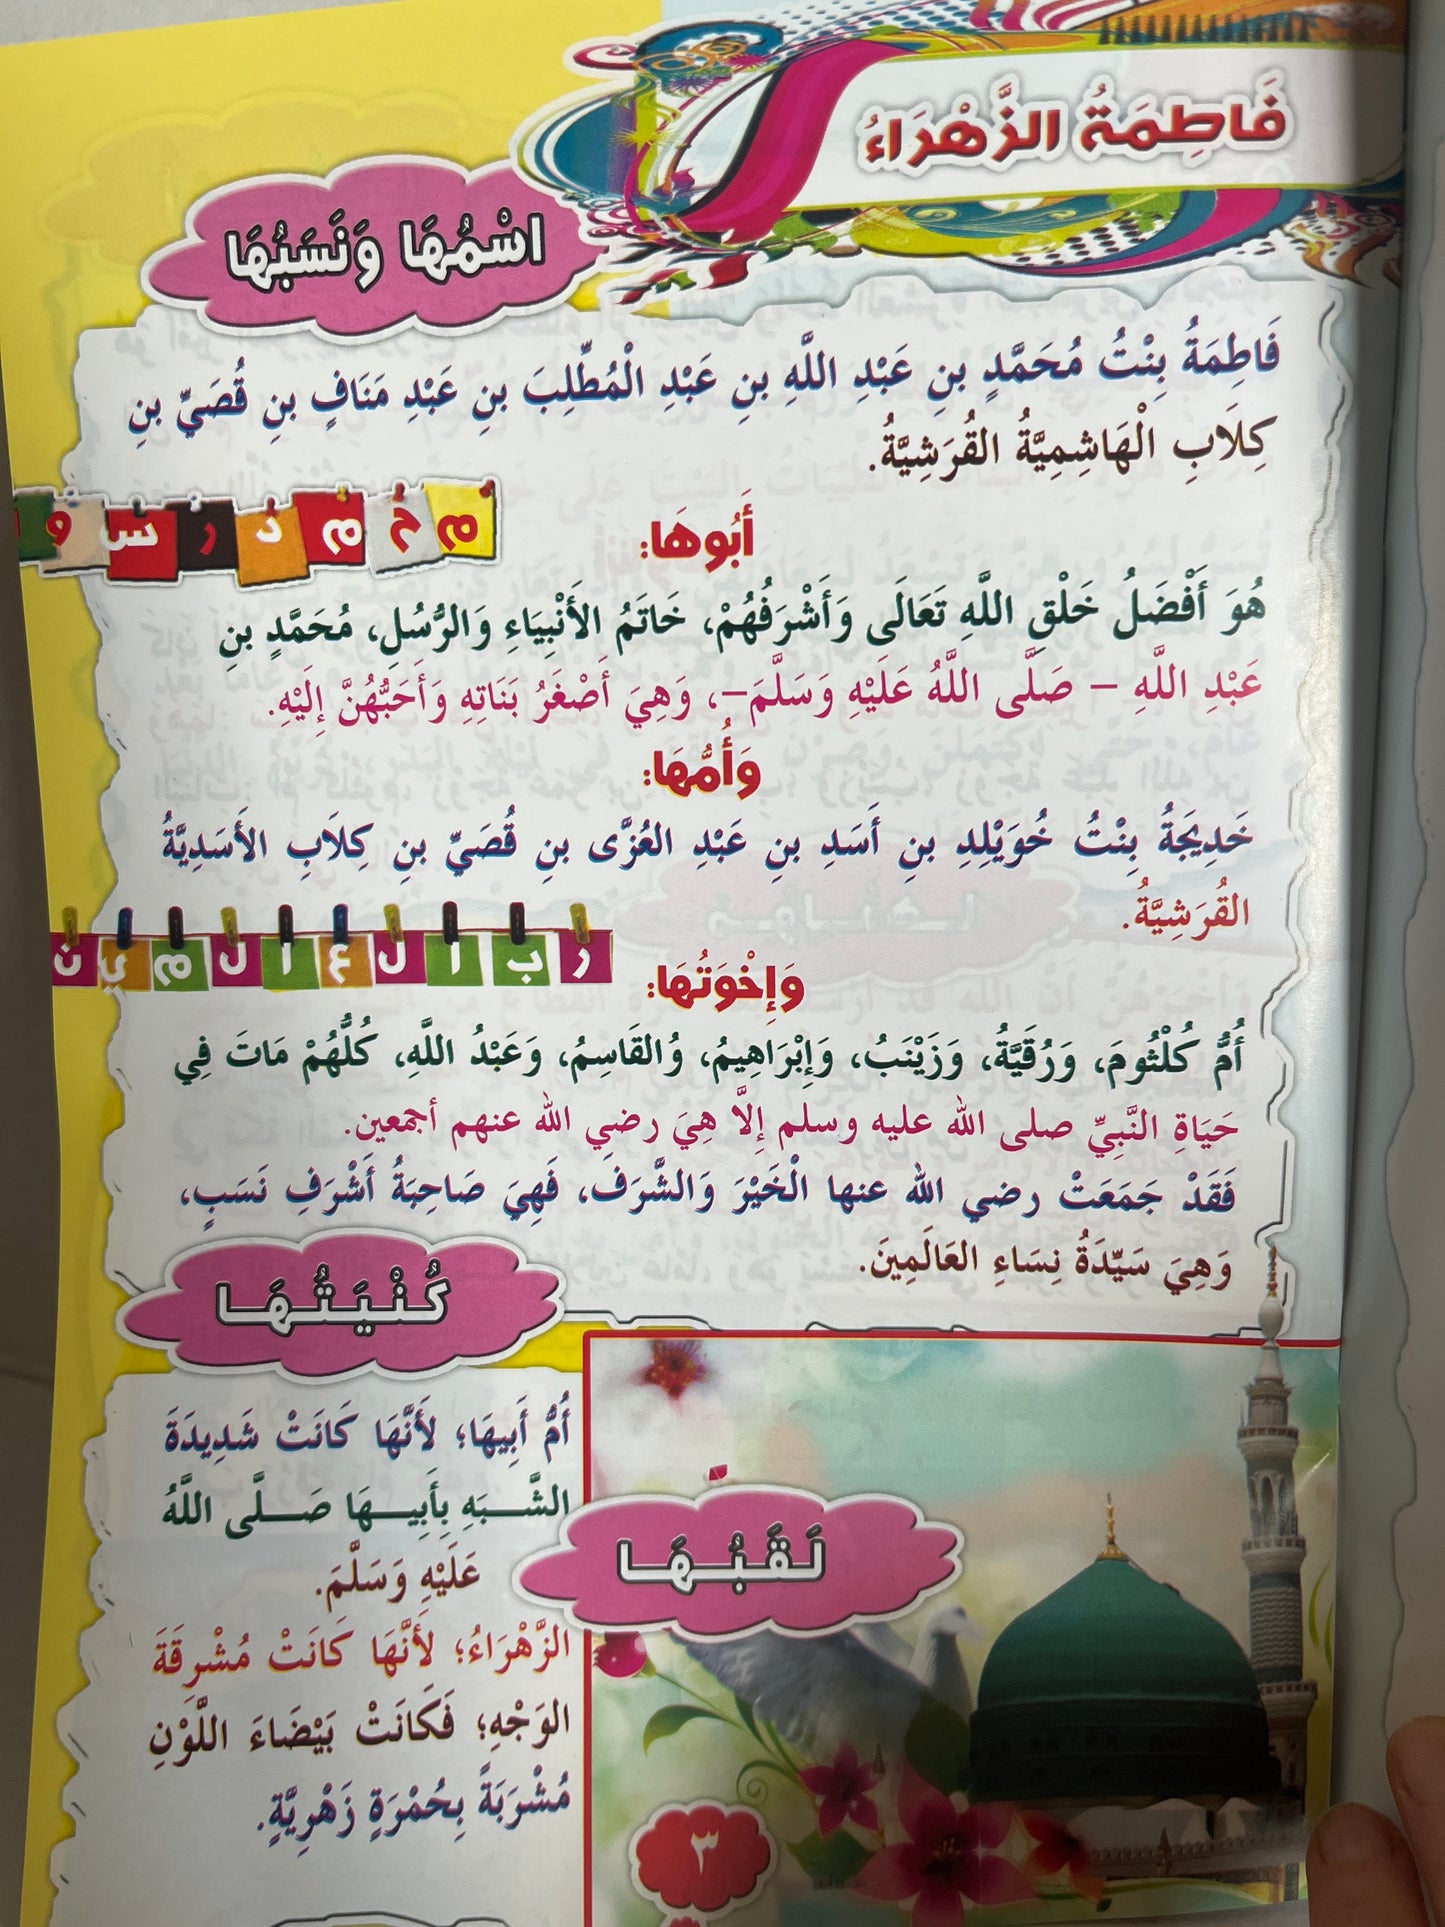 فَاطِمَةُ الزَّهْرَاءُ
اسْمُهَا وَنَسَبُهَا
فَاطِمَةُ بِنْتُ مُحَمَّدٍ بنِ عَبْدِ اللَّهِ بنِ عَبْدِ الْمُطَّلِبَ بنِ عَبْدِ مَنَافٍ بنِ قُصَيِّ بنِ
كِلَابِ الْهَاشِمِيَّةُ القُرَشِيَّةُ.
م ح م د ر س و
أَبُوهَا:
هُوَ أَفْضَلُ خَلْقِ اللَّهِ تَعَالَى وَأَشْرَفُهُمْ، خَاتَمُ الأَنْبِيَاءِ وَالرُّسُلِ، مُحَمَّدٍ بنِ
عَبْدِ اللَّهِ – صَلَّى اللَّهُ عَلَيْهِ وَسَلَّمَ–، وَهِيَ أَصْغَرُ بَنَاتِهِ وَأَحَبُّهُنَّ إِلَيْهِ.
وَأُمُّهَا:
خَدِيجَةُ بِنْتُ خُوَيْلِدِ بنِ أَسَدِ بنِ عَبْدِ العُزَّى بنِ قُصَيِّ بنِ كِلَابِ الأَسَدِيَّةُ
القُرَشِيَّةُ.
ر ب ا ل ع ا ل م ي ن
وَإِخْوَتُهَا:
أُمُّ كُلْثُومَ، وَرُقَيَّةُ، وَزَيْنَبُ، وَإِبْرَاهِيمُ، وُالقَاسِمُ، وَعَبْدُ اللَّهِ، كُلُّهُمْ مَاتَ فِي
حَيَاةِ النَّبِيِّ صلى الله عليه وسلم إِلَّا هِيَ رضي الله عنهم أجمعين.
فَقَدْ جَمَعَتْ رضي الله عنها الْخَيْرَ وَالشَّرَف، فَهِيَ صَاحِبَةُ أَشْرَفِ نَسَبٍ،
وَهِيَ سَيِّدَةُ نِسَاءِ العَالَمِينَ.
كُنْيَتُهَا
أُمُّ أَبِيهَا؛ لأَنَّهَا كَانَتْ شَدِيدَةَ
الشَّبَهِ بِأَبِيهَا صَلَّى اللَّهُ
عَلَيْهِ وَسَلَّمَ.
لَقَبُهَا
الزَّهْرَاءُ؛ لأَنَّهَا كَانَتْ مُشْرِقَةَ
الوَجْهِ؛ فَكَانَتْ بَيْضَاءَ اللَّوْنِ
مُشْرَبَةً بِحُمْرَةٍ زَهْرِيَّةٍ.
٣